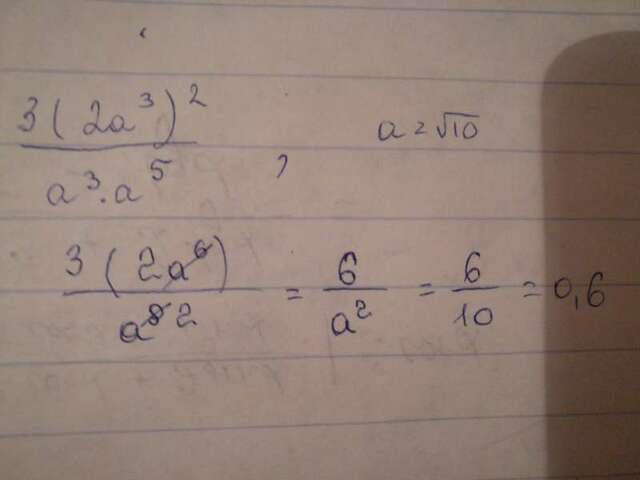 3(2a³)² / a³·a⁵ , a=√10
3(2a⁶) / a⁸ 2 = 6/a² = 6/10 = 0,6